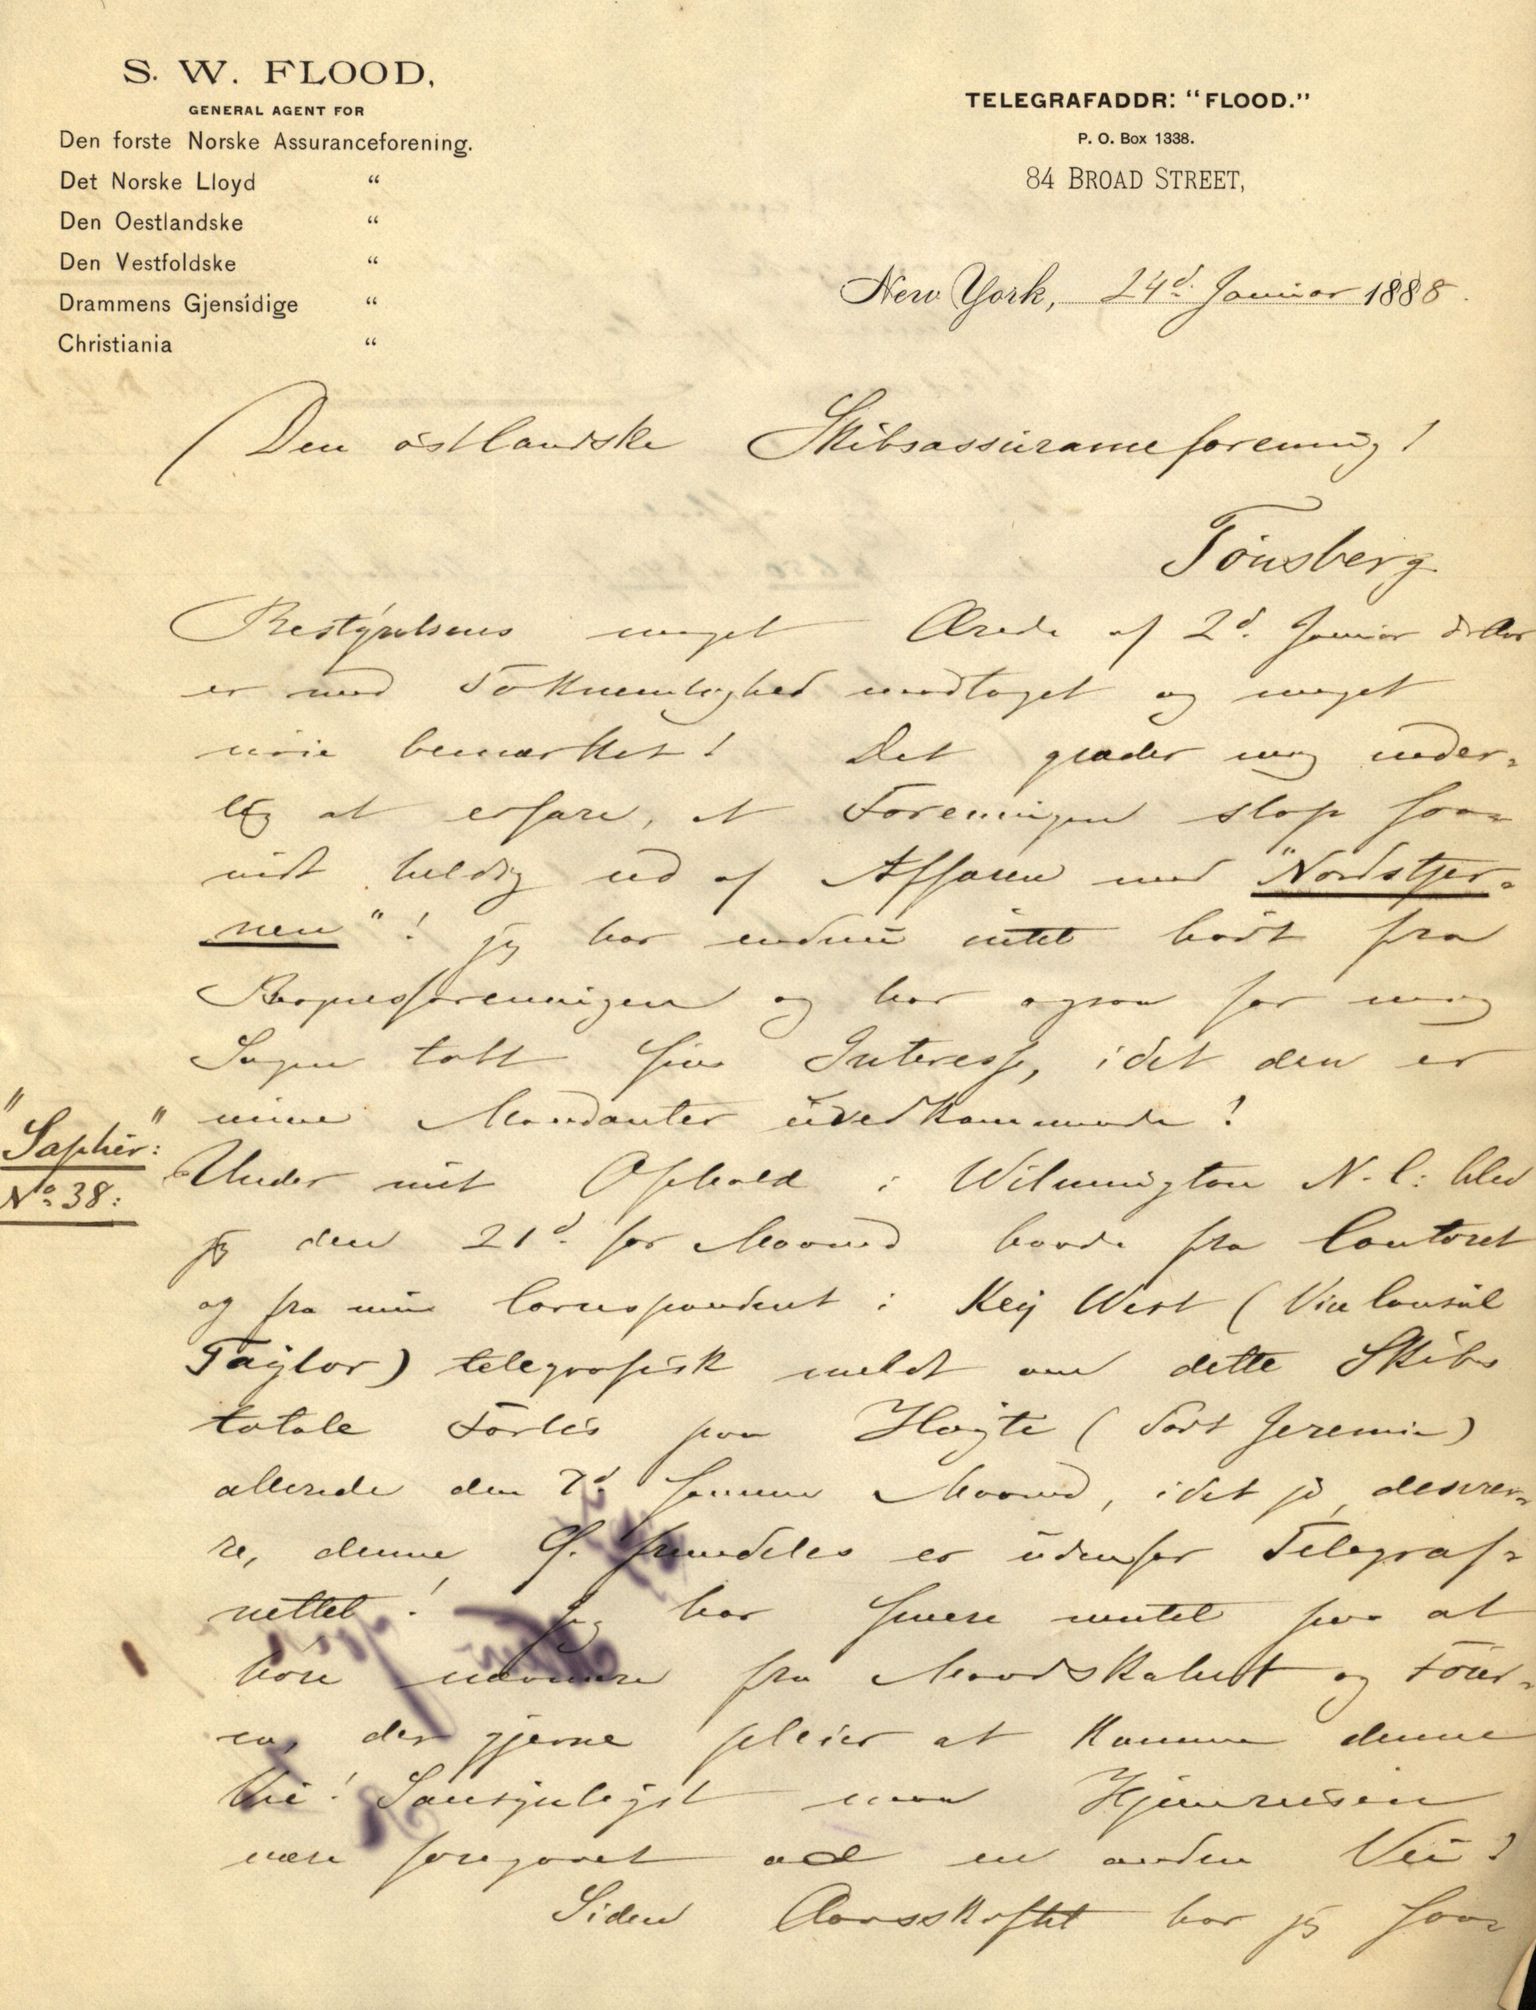 S. W. FLOOD,
GENERAL AGENT FOR
Den forste Norske Assuranceforening.
Det Norske Lloyd "
Den Oestlandske "
Den Vestfoldske "
Drammens Gjensidige "
Christiania "
TELEGRAFADDR: "FLOOD."
P. O. Box 1338.
84 BROAD STREET,
New York, 24d. Januar 1888.
Den östlandske Skibsassuranceforening!
Tönsberg
Bestyrelsens meget Ærede af 2d. Januar d. Aar
er med Taknemlighed modtaget og meget
nöie bemærket! Det glæder mig inder-
lig at erfare, at Foreningen slap saa-
vidt heldig ud af Affæren med "Nordstjer-
nen"! jeg har endnu intet hört fra
Bergensforeningen og har ogsaa for mig
Sagen tabt sin Interesse, idet den er
mine Mandanter uvedkommende!
"Saphir":
No. 38:
Under mit Ophold i Wilmington N.C: blev
jeg den 21d. for Maaned baade fra Contoret
og fra min Correspondent i Key West (Vice Consul
Taylor) telegrafisk meldt om dette Skibs
totale Forlis paa Hayti (Port Jeremie)
allerede den 7d. samme Maaned, idet jo, desvær-
re, denne Ö. fremdeles er udenfor Telegraf-
nettet! Jeg har senere ventet paa at
höre nærmere fra Mandskabet og Före-
en, der gjerne pleier at komme denne
Vei! Sandsynligst maa Hjemreisen
være foregaaet ad en anden Vei!
Siden Aarsskiftet har jeg saa-